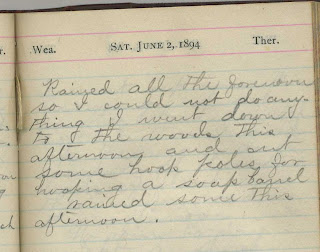 Wea. SAT. JUNE 2, 1894 Ther.
Rained all the forenoon
so I could not do any-
thing I went down
to the woods this
afternoon and cut
some hoop poles for
hooping a soap barrel
rained some this
afternoon.